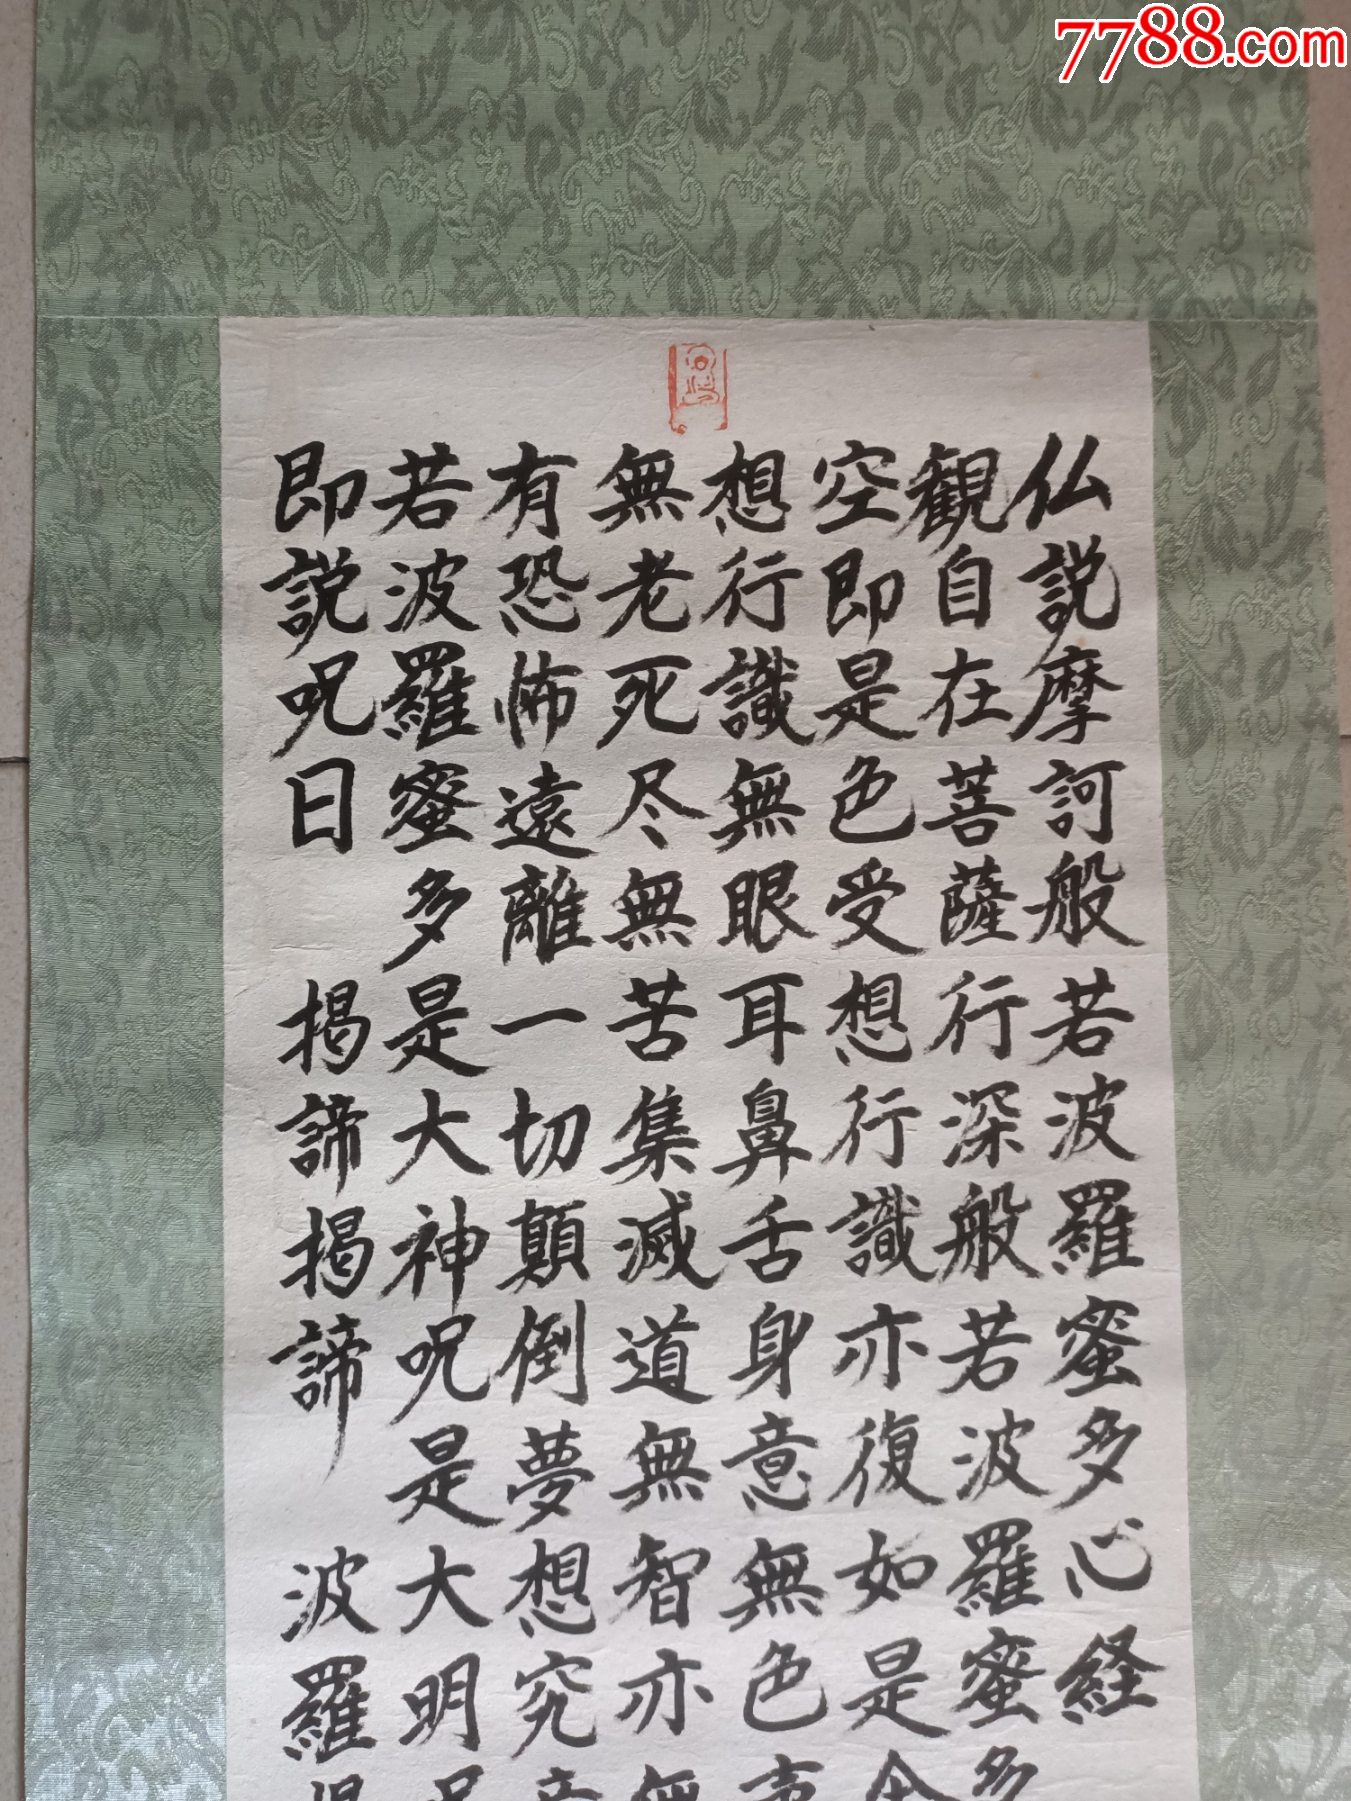 7788.com
仏説摩訶般若波羅蜜多心経
観自在菩薩行深般若波羅蜜多
空即是色受想行識亦復如是舎
想行識無眼耳鼻舌身意無色声
無老死尽無苦集滅道無智亦無
有恐怖遠離一切顛倒夢想究竟
若波羅蜜多是大神呪是大明呪
即説呪曰 揭諦揭諦 波羅揭